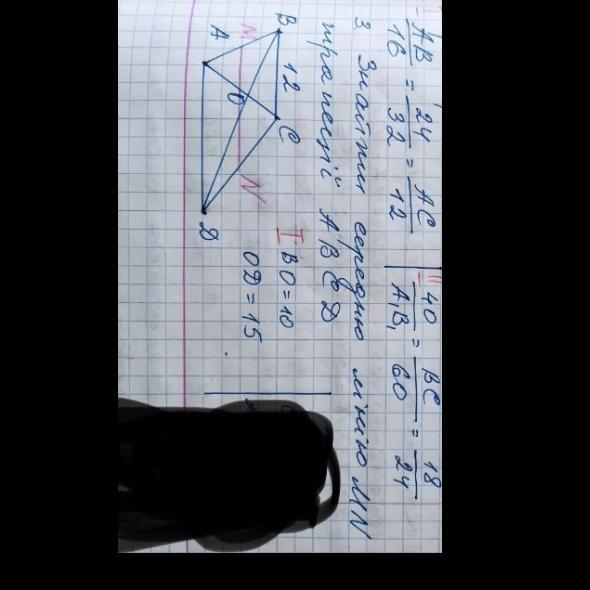 I AB/16 = 24/32 = AC/12
II 40/A₁B₁ = BC/60 = 18/24
3. Знайти середню лінію MN
трапеції ABCD
B 12 C
M O N
A D
I BO = 10
OD = 15